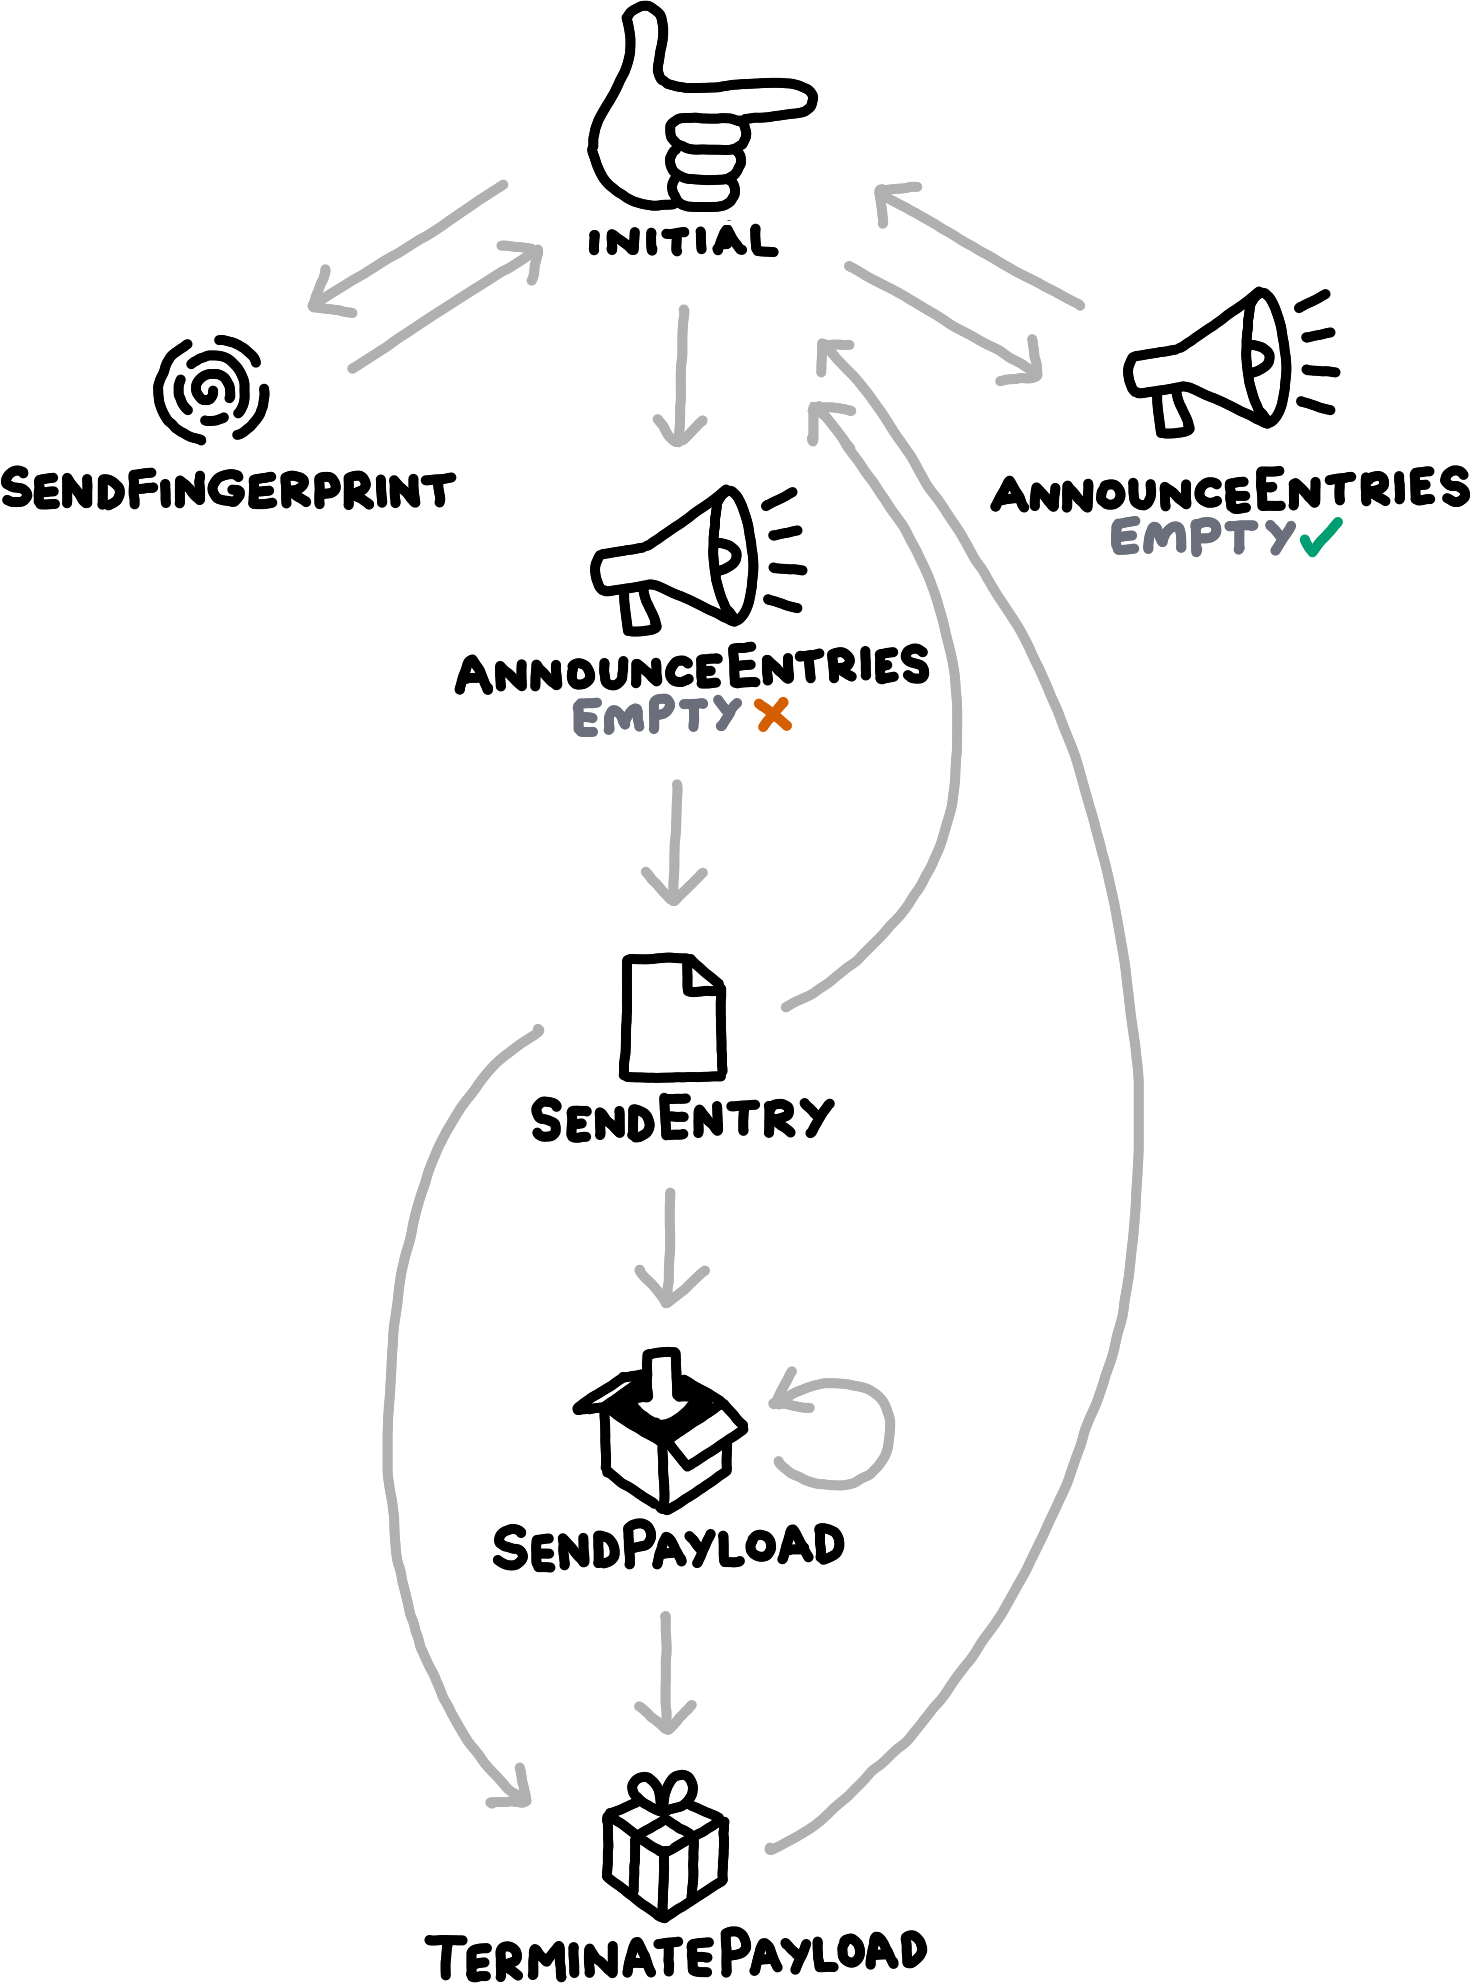 INITIAL
SENDFINGERPRINT
ANNOUNCEENTRIES
EMPTY ✓
ANNOUNCEENTRIES
EMPTY ✗
SENDENTRY
SENDPAYLOAD
TERMINATEPAYLOAD